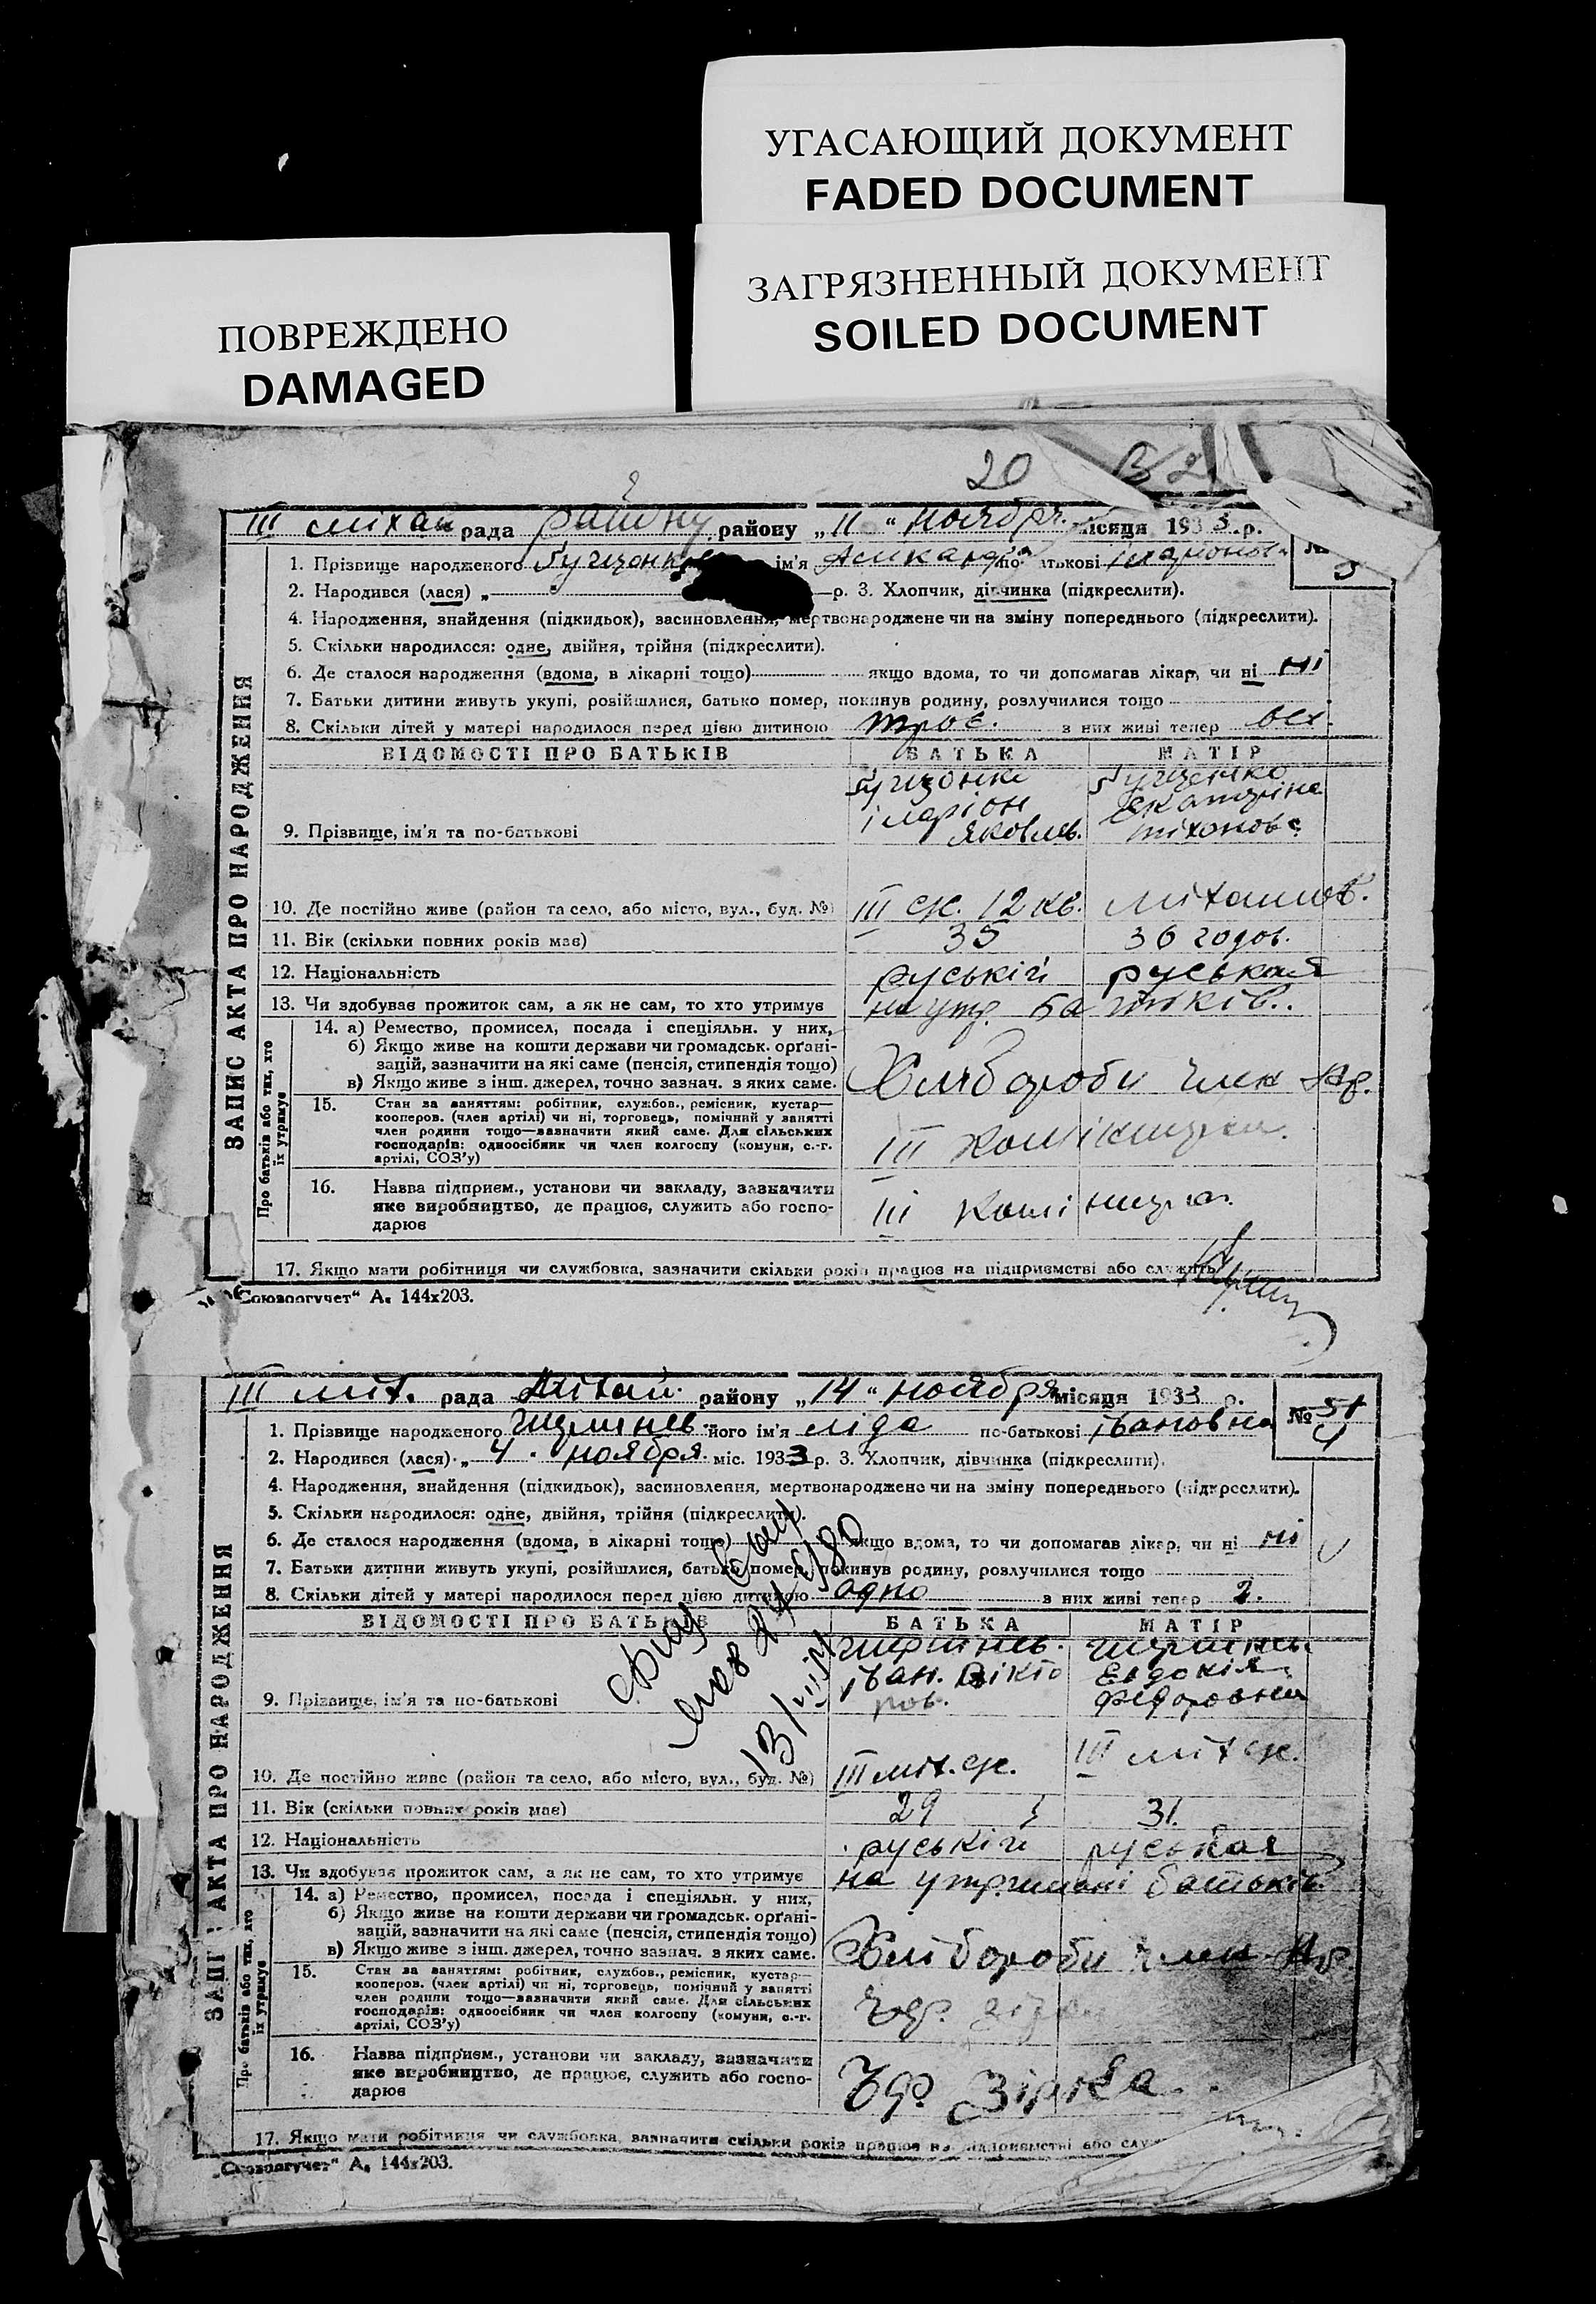 УГАСАЮЩИЙ ДОКУМЕНТ
FADED DOCUMENT
ЗАГРЯЗНЕННЫЙ ДОКУМЕНТ
SOILED DOCUMENT
ПОВРЕЖДЕНО
DAMAGED
20
III рада району „11“ ноября місяця 1933 р.
1. Прізвище народженого ім'я по батькові
2. Народився (лася) „ р. 3. Хлопчик, дівчинка (підкреслити).
4. Народження, знайдення (підкидьок), засиновлення, мертвонароджене чи на зміну попереднього (підкреслити).
5. Скільки народилося: одне, двійня, трійня (підкреслити).
6. Де сталося народження (вдома, в лікарні тощо) якщо вдома, то чи допомагав лікар, чи ні ні
7. Батьки дитини живуть укупі, розійшлися, батько помер, покинув родину, розлучилися тощо
8. Скільки дітей у матері народилося перед цією дитиною троє. з них живі тепер всі
ЗАПИС АКТА ПРО НАРОДЖЕННЯ
ВІДОМОСТІ ПРО БАТЬКІВ БАТЬКА МАТІР
9. Прізвище, ім'я та по-батькові іларіон Яковлев.
10. Де постійно живе (район та село, або місто, вул., буд. №) III 12 кв.
11. Вік (скільки повних років має) 35 36 годов.
12. Національність руській руськая
13. Чи здобував прожиток сам, а як не сам, то хто утримує на утр. батьків.
Про батьків або тих, хто їх утримує
14. а) Ремество, промисел, посада і спеціяльн. у них,
б) Якщо живе на кошти держави чи громадськ. орґані-
зацій, зазначити на які саме (пенсія, стипендія тощо)
в) Якщо живе з інш. джерел, точно зазнач. з яких саме.
Хлібороби член Ар.
15. Стан за заняттям: робітник, службов., ремісник, кустар—
кооперов. (член артілі) чи ні, торговець, помічний у занятті
член родини тощо—зазначити який саме. Для сільських
господарів: одноосібник чи член колгоспу (комуни, с.-г.
артілі, СОЗ'у)
III
16. Назва підприєм., установи чи закладу, зазначити
яке виробництво, де працює, служить або госпо-
дарює
III
17. Якщо мати робітниця чи службовка, зазначити скільки років працює на підприємстві або служить
„Союзоргучет“ А. 144х203.
III рада району „14“ ноября місяця 1933 р.
№ 51
4
1. Прізвище народженого його ім'я ліда по-батькові івановна
2. Народився (лася) „ 4 “ ноября міс. 1933 р. 3. Хлопчик, дівчинка (підкреслити).
4. Народження, знайдення (підкидьок), засиновлення, мертвонароджене чи на зміну попереднього (підкреслити).
5. Скільки народилося: одне, двійня, трійня (підкреслити).
6. Де сталося народження (вдома, в лікарні тощо) якщо вдома, то чи допомагав лікар, чи ні ні
7. Батьки дитини живуть укупі, розійшлися, батько помер, покинув родину, розлучилися тощо
8. Скільки дітей у матері народилося перед цією дитиною одно з них живі тепер 2.
ЗАПИС АКТА ПРО НАРОДЖЕННЯ
ВІДОМОСТІ ПРО БАТЬКІВ БАТЬКА МАТІР
9. Прізвище, ім'я та по-батькові іван. Вікто ров. Евдокія федоровна
10. Де постійно живе (район та село, або місто, вул., буд. №) III III
11. Вік (скільки повних років має) 29 31.
12. Національність руській руськая
13. Чи здобував прожиток сам, а як не сам, то хто утримує на утримані батьків
Про батьків або тих, хто їх утримує
14. а) Ремество, промисел, посада і спеціяльн. у них,
б) Якщо живе на кошти держави чи громадськ. орґані-
зацій, зазначити на які саме (пенсія, стипендія тощо)
в) Якщо живе з інш. джерел, точно зазнач. з яких саме.
Хлібороби член Ар.
15. Стан за заняттям: робітник, службов., ремісник, кустар—
кооперов. (член артілі) чи ні, торговець, помічний у занятті
член родини тощо—зазначити який саме. Для сільських
господарів: одноосібник чи член колгоспу (комуни, с.-г.
артілі, СОЗ'у)
16. Назва підприєм., установи чи закладу, зазначити
яке виробництво, де працює, служить або госпо-
дарює
Чер. Зірка
17. Якщо мати робітниця чи службовка, зазначити скільки років працює на підприємстві або
„Союзоргучет“ А. 144х203.